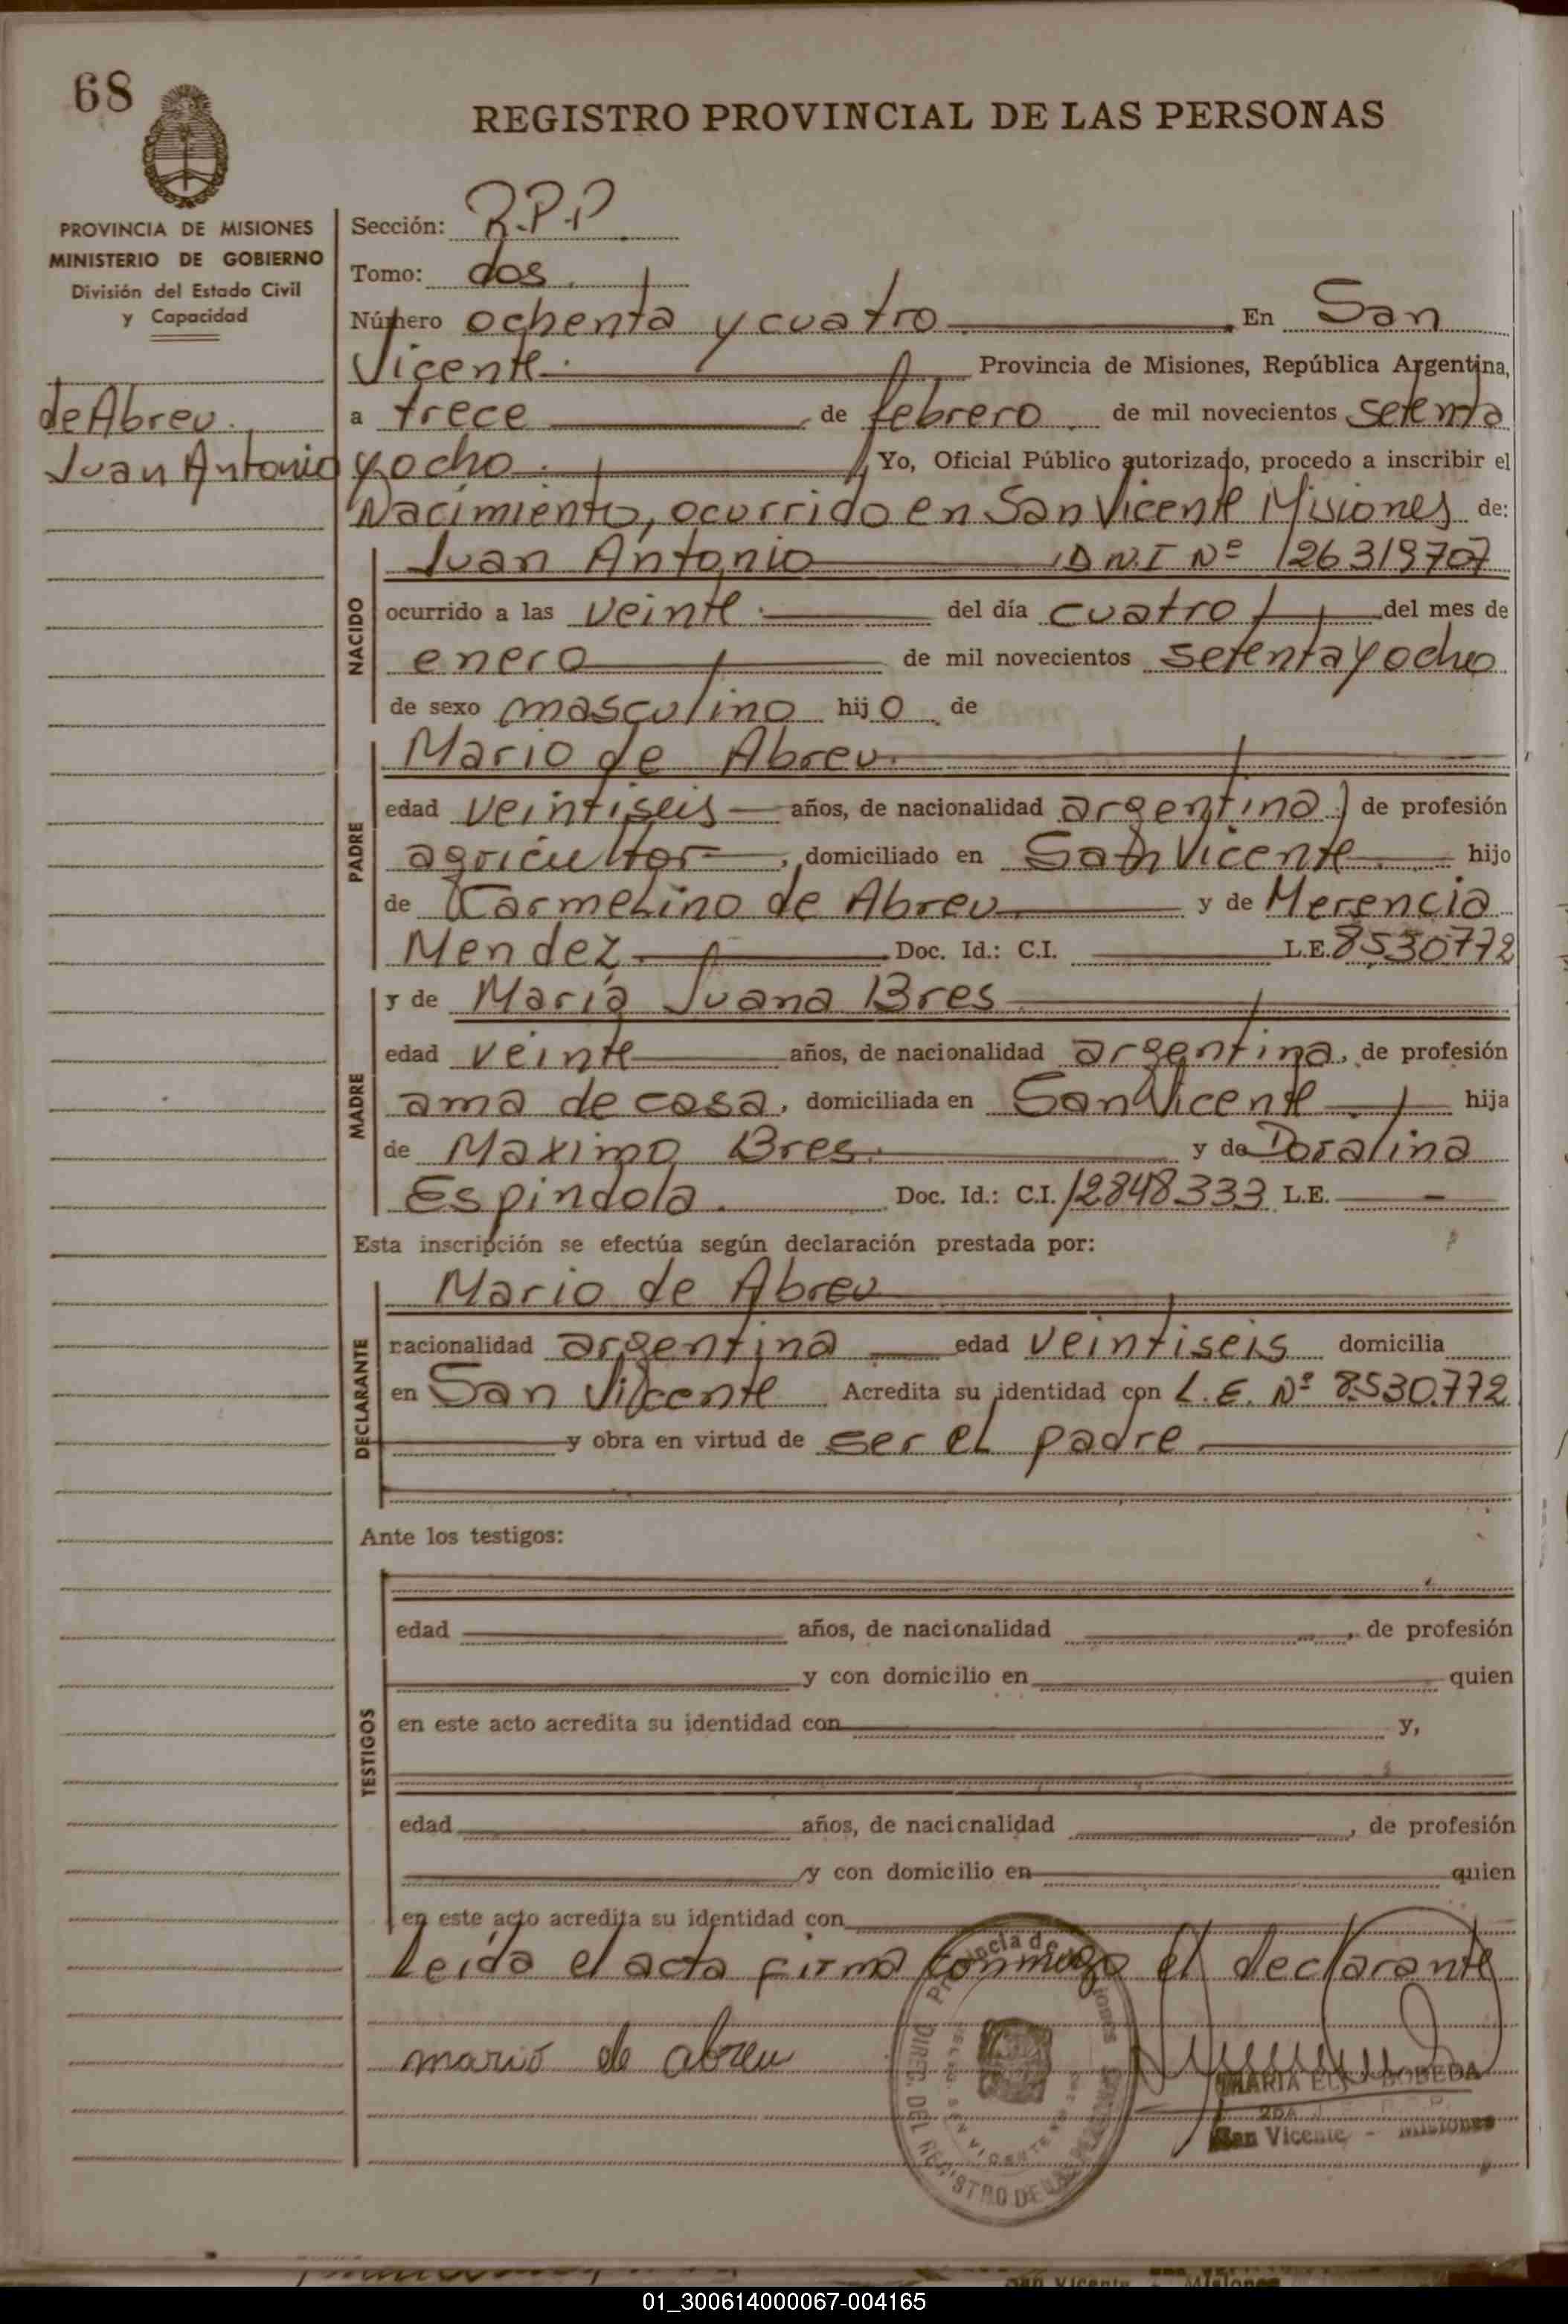 68
REGISTRO PROVINCIAL DE LAS PERSONAS
PROVINCIA DE MISIONES
MINISTERIO DE GOBIERNO
División del Estado Civil
y Capacidad
de Abreu.
Juan Antonio
Sección: R.P.P
Tomo: dos
Número ochenta y cuatro En San
Vicente Provincia de Misiones, República Argentina,
a trece de febrero de mil novecientos setenta
y ocho Yo, Oficial Público autorizado, procedo a inscribir el
Nacimiento, ocurrido en San Vicente Misiones de:
NACIDO
Juan Antonio D N.I Nº 26319707
ocurrido a las veinte del día cuatro del mes de
enero de mil novecientos setenta y ocho
de sexo masculino hijo de
PADRE
Mario de Abreu
edad veintiseis años, de nacionalidad argentina, de profesión
agricultor, domiciliado en San Vicente hijo
de Carmelino de Abreu y de Merencia
Mendez Doc. Id.: C.I. L.E. 8530772
MADRE
y de María Juana Bres
edad veinte años, de nacionalidad argentina, de profesión
ama de casa, domiciliada en San Vicente hija
de Maximo Bres y de Doralina
Espindola Doc. Id.: C.I. 12848333 L.E. -
Esta inscripción se efectúa según declaración prestada por:
DECLARANTE
Mario de Abreu
nacionalidad argentina edad veintiseis domicilia
en San Vicente Acredita su identidad con L.E. Nº 8.530.772
y obra en virtud de ser el padre
Ante los testigos:
TESTIGOS
edad años, de nacionalidad , de profesión
y con domicilio en quien
en este acto acredita su identidad con y,
edad años, de nacionalidad , de profesión
y con domicilio en quien
en este acto acredita su identidad con
Leida el acta firma conmigo el declarante
mario de abreu
Provincia de Misiones
DIREC. DEL REGISTRO DE LAS PERSONAS
SAN VICENTE
MARIA BOBEDA
San Vicente - Misiones
San Vicente - Misiones
01_300614000067-004165